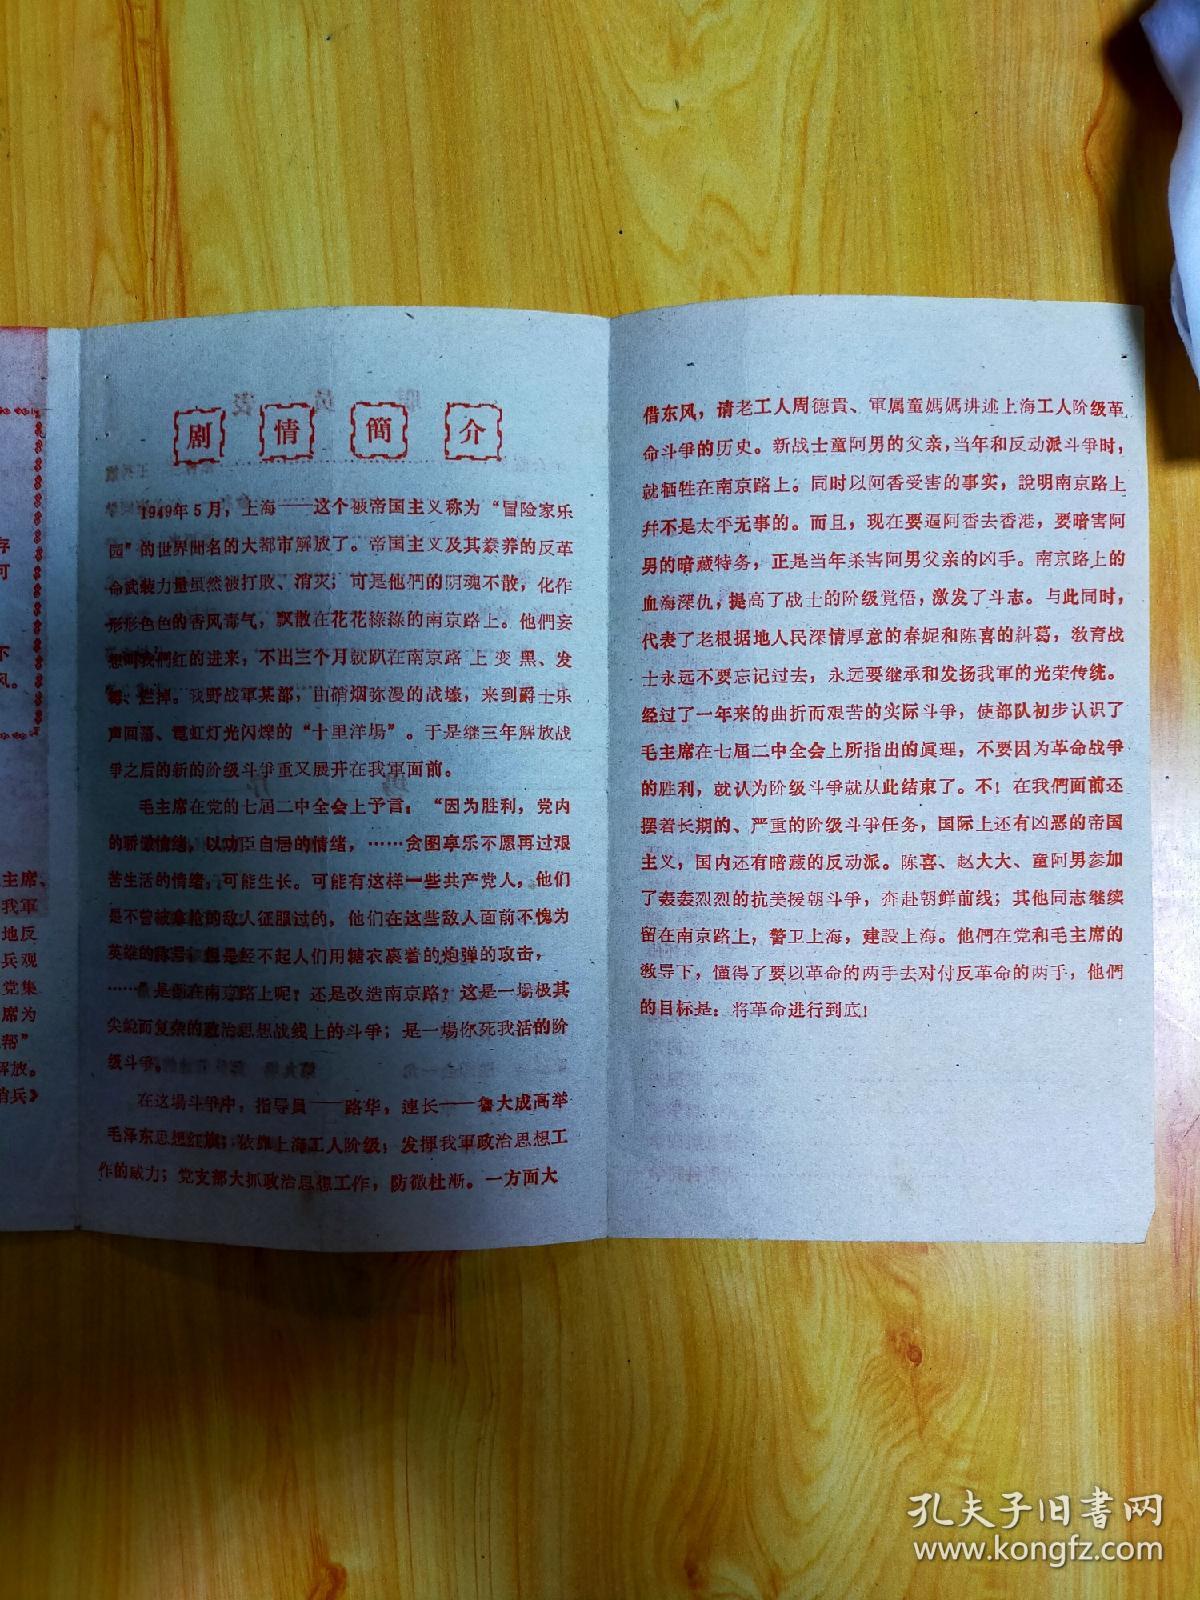 存
可
不
风。
主席、
我軍
地反
兵观
党集
席为
帮”
解放。
哨兵》
剧情簡介
1949年5月，上海——这个被帝国主义称为“冒险家乐
园”的世界闻名的大都市解放了。帝国主义及其豢养的反革
命武装力量虽然被打败、消灭；可是他們的阴魂不散，化作
形形色色的香风毒气，飘散在花花綠綠的南京路上。他們妄
想叫我們红的进来，不出三个月就趴在南京路上变黑、发
霉、烂掉。我野战軍某部，由硝烟弥漫的战壕，来到爵士乐
声回荡、霓虹灯光闪爍的“十里洋場”。于是继三年解放战
爭之后的新的阶级斗爭重又展开在我軍面前。
毛主席在党的七届二中全会上予言：“因为胜利，党内
的骄傲情绪，以功臣自居的情绪，……贪图享乐不愿再过艰
苦生活的情绪，可能生长。可能有这样一些共产党人，他们
是不曾被拿枪的敌人征服过的，他们在这些敌人面前不愧为
英雄的称号；但是经不起人们用糖衣裹着的炮弹的攻击，
……”是倒在南京路上呢？还是改造南京路？这是一場极其
尖銳而复杂的政治思想战线上的斗爭；是一場你死我活的阶
级斗爭。
在这場斗爭中，指导員——路华，連长——鲁大成高举
毛泽东思想红旗；依靠上海工人阶级；发揮我軍政治思想工
作的威力；党支部大抓政治思想工作，防微杜渐。一方面大
借东风，请老工人周德貴、軍属童媽媽讲述上海工人阶级革
命斗爭的历史。新战士童阿男的父亲，当年和反动派斗爭时，
就牺牲在南京路上。同时以阿香受害的事实，說明南京路上
并不是太平无事的。而且，现在要逼阿香去香港，要暗害阿
男的暗藏特务，正是当年杀害阿男父亲的凶手。南京路上的
血海深仇，提高了战士的阶级覚悟，激发了斗志。与此同时，
代表了老根据地人民深情厚意的春妮和陈喜的糾葛，敎育战
士永远不要忘记过去，永远要继承和发扬我軍的光荣传统。
经过了一年来的曲折而艰苦的实际斗爭，使部队初步认识了
毛主席在七届二中全会上所指出的眞理，不要因为革命战爭
的胜利，就认为阶级斗爭就从此结束了。不！在我們面前还
摆着长期的、严重的阶级斗爭任务，国际上还有凶恶的帝国
主义，国内还有暗藏的反动派。陈喜、赵大大、童阿男参加
了轰轰烈烈的抗美援朝斗爭，奔赴朝鲜前线；其他同志继续
留在南京路上，警卫上海，建設上海。他們在党和毛主席的
敎导下，懂得了要以革命的两手去对付反革命的两手，他們
的目标是：将革命进行到底！
孔夫子旧書网
www.kongfz.com